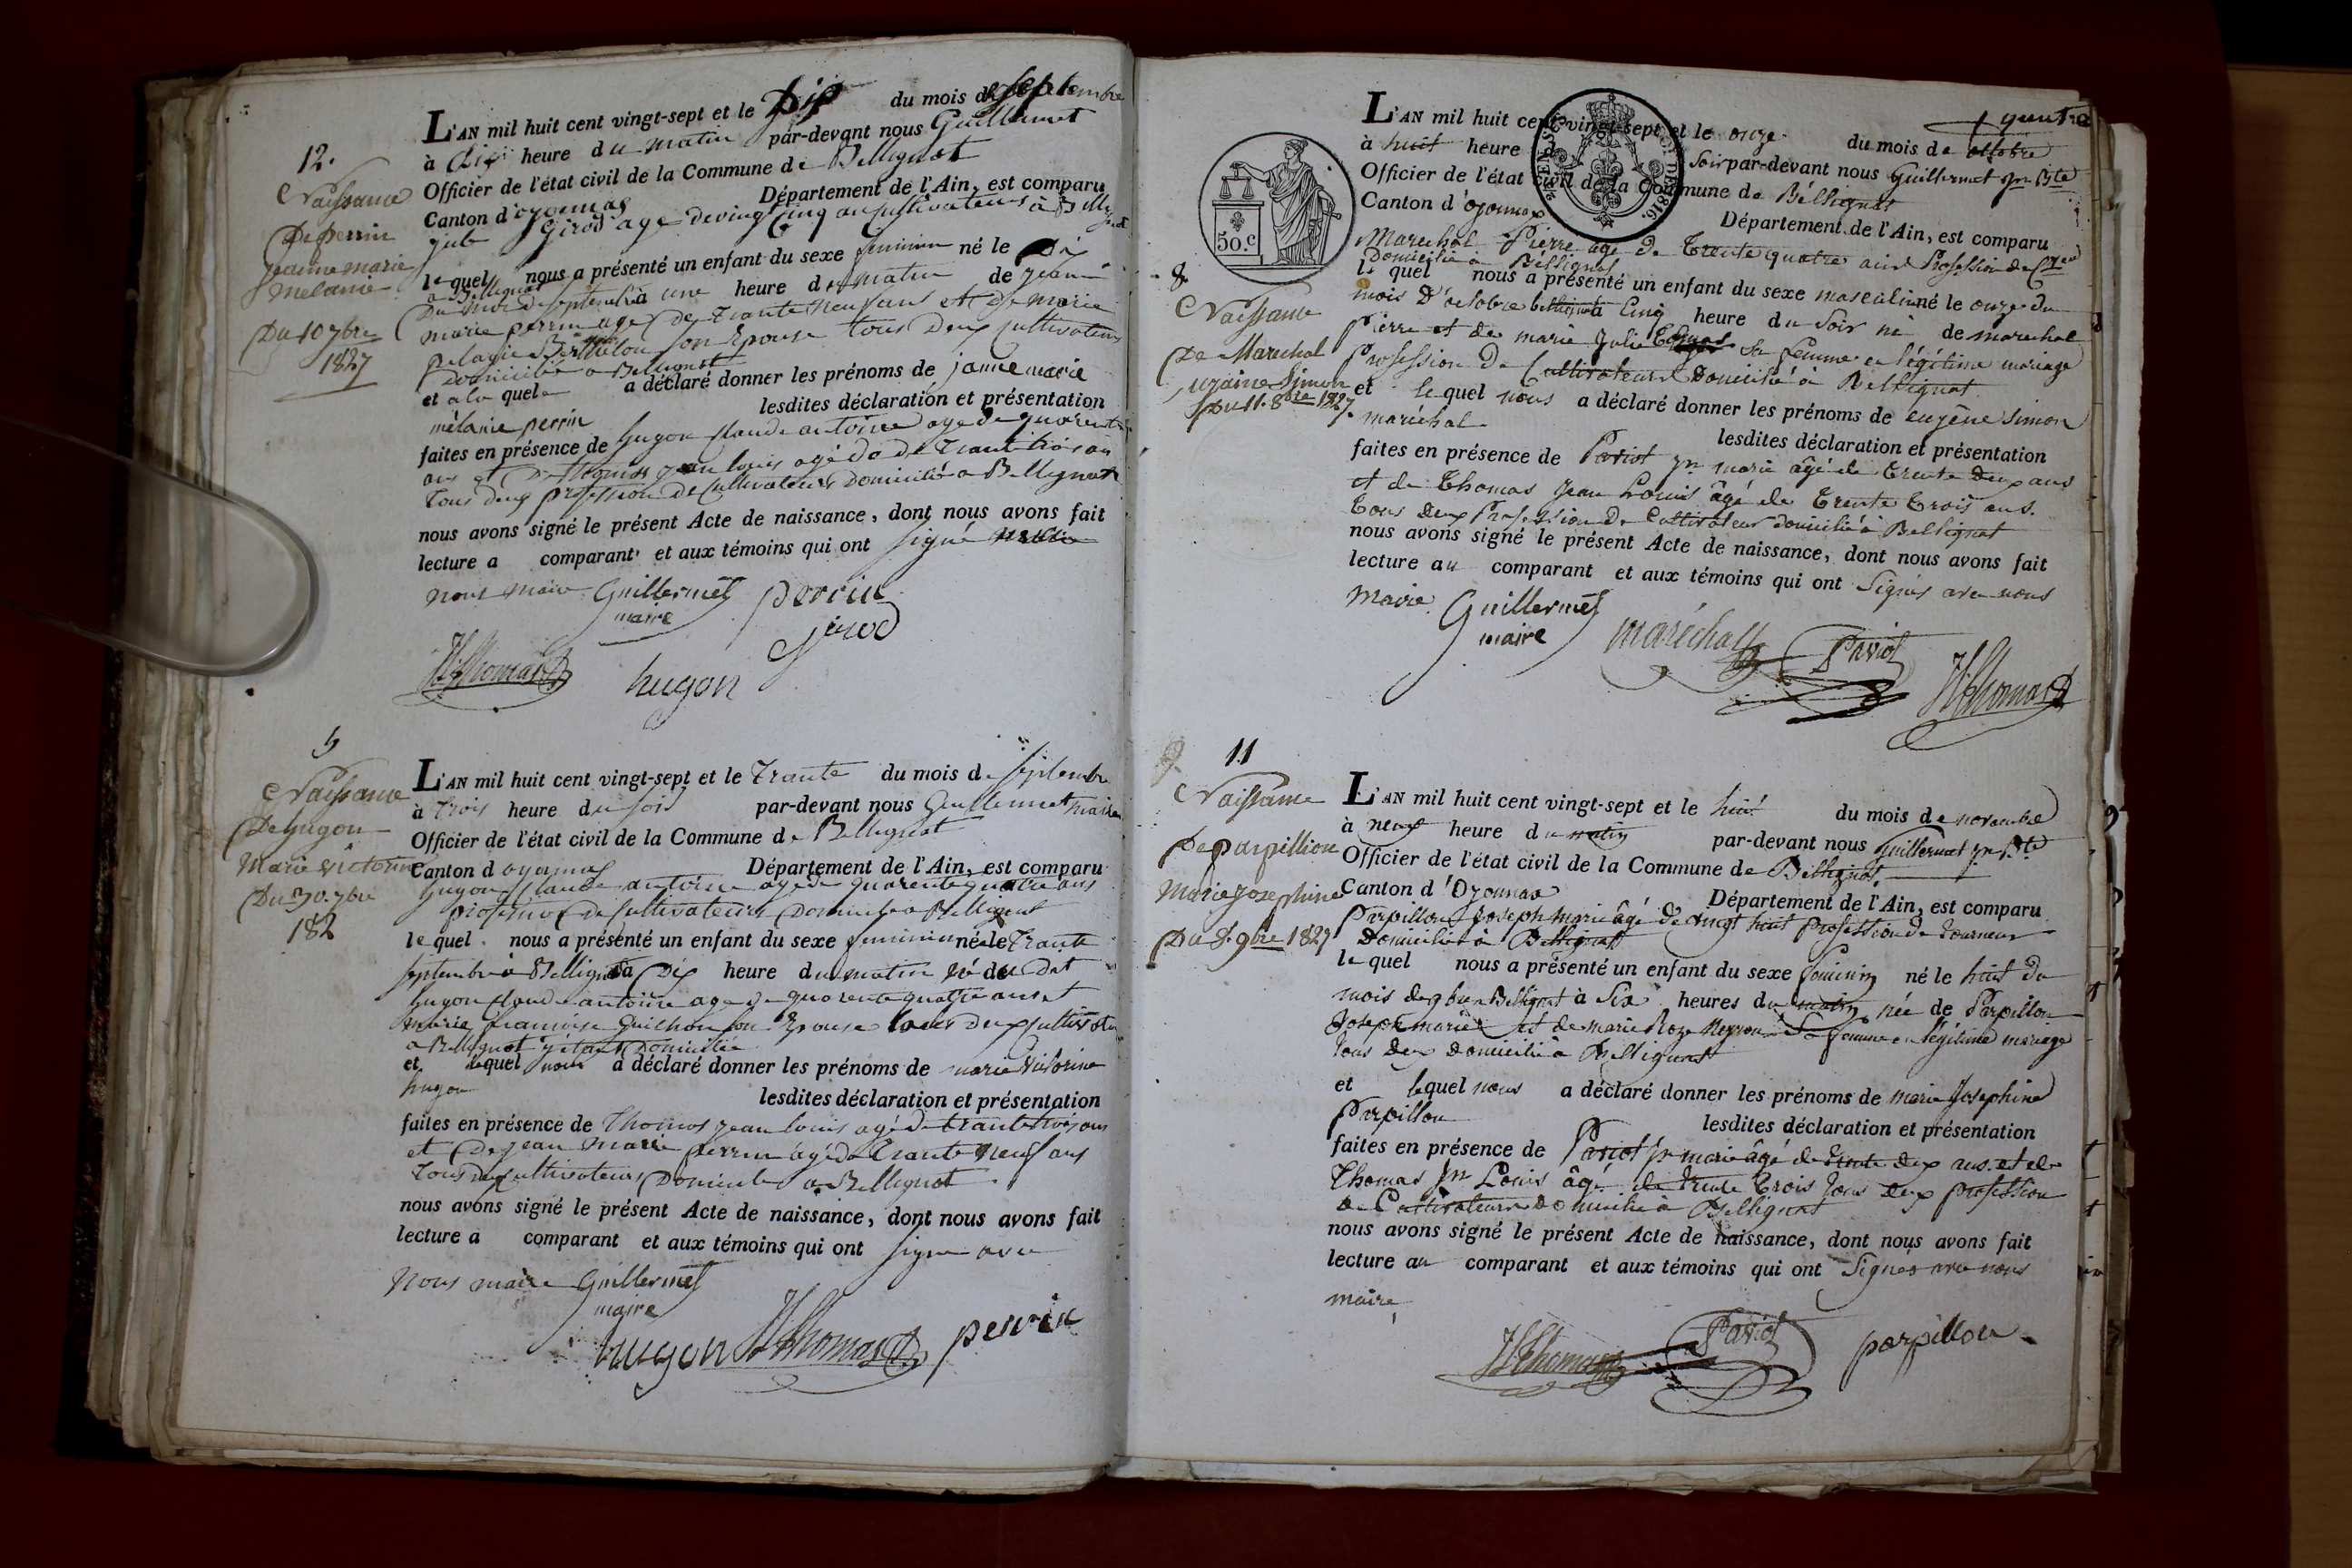 12.
Naissance
De perrin
jeanne marie
melanie
Du 10 7bre
1827
L'AN mil huit cent vingt-sept et le Dix du mois de septembre
à dix heure du matin par-devant nous Guillermet
Officier de l'état civil de la Commune de Bellignat
Canton d'oyonnas Département de l'Ain, est comparu
Girod agé de vingt cinq an cultivateur à Bellignat
le quel nous a présenté un enfant du sexe feminin né le Dix
Du mois de septembre à une heure du matin de jean
marie perrin agé de trante neuf ans et de marie
pelagie son Epouse tous deux cultivateurs
Domicilié a Bellignat
et a la quele a déclaré donner les prénoms de janne marie
mélanie perrin lesdites déclaration et présentation
faites en présence de hugon claude antoine age de quarente
ans et De thomas jean louis agé de de trante trois an
tous deux profession de cultivateurs Domicilié a Bellignat
nous avons signé le présent Acte de naissance, dont nous avons fait
lecture a comparant et aux témoins qui ont signé
nous maire Guillermet perrin
maire
girod
JLThomas hugon
Naissance
De hugon
Marie victorine
Du 30 7bre
182
L'AN mil huit cent vingt-sept et le trante du mois de septembre
à trois heure du soir par-devant nous Guillermet maire
Officier de l'état civil de la Commune de Bellignat
Canton d oyonnas Département de l'Ain, est comparu
hugon claude antoine age de quarente quatre ans
profession de cultivateurs Domicilié a Bellignat
le quel nous a présenté un enfant du sexe feminin né le trante
septembre à Bellignat à Dix heure du matin né du dit
hugon claude antoine age de quarente quatre ans et
marie françoise Guichon son Epouse tous deux cultivateur
a Bellignat y étant Domicilié
et lequel nous a déclaré donner les prénoms de marie victorine
hugon lesdites déclaration et présentation
faites en présence de Thomas jean louis agé de trante trois ans
et De jean marie perrin agé de trante neuf ans
tous deux cultivateurs Domicilié a Bellignat
nous avons signé le présent Acte de naissance, dont nous avons fait
lecture a comparant et aux témoins qui ont signe avec
nous maire Guillermet
maire
hugon JLThomas perrin
quatre
50.c
1816.
8.
Naissance
De Marechal
ugaine Simon
Du 11. 8bre 1827
L'AN mil huit cent vingt-sept et le onze du mois de octobre
à huit heure Soir par-devant nous Guillermet Jn Bte
Officier de l'état civil de la Commune de Bellignat
Canton d'Oyonnax Département de l'Ain, est comparu
Marechal Pierre âgé de trente quatre ans Profession de
Domicilié à Bellignat
le quel nous a présenté un enfant du sexe masculin né le onze du
mois d'octobre bellignat à Cinq heure du Soir né de marechal
Pierre et de marie Julie sa femme en légitime mariage
Profession de Cultivateurs Domicilié à Bellignat
et le quel nous a déclaré donner les prénoms de eugène simon
maréchal lesdites déclaration et présentation
faites en présence de Paviot Jn marie âgé de trente deux ans
et de Thomas Jean Louis âgé de trente trois ans.
Tous deux Profession de Cultivateur domicilié à Bellignat
nous avons signé le présent Acte de naissance, dont nous avons fait
lecture au comparant et aux témoins qui ont Signés avec nous
Maire. Guillermet
maire maréchal Paviot JLThomas
9. 11
Naissance
De parpillion
Marie josephine
Du 8. 9bre 1827
L'AN mil huit cent vingt-sept et le huit du mois de novembre
à neuf heure du matin par-devant nous Guillermet Jn Bte
Officier de l'état civil de la Commune de Bellignat.
Canton d'Oyonnax Département de l'Ain, est comparu
Parpillon Joseph Marie âgé de vingt huit Profession de tourneur
Domicilié à Bellignat
le quel nous a présenté un enfant du sexe féminin né le huit du
mois de 9bre Bellignat à Six heures du matin née de Parpillon
Joseph marie et de marie Roze sa femme en légitime mariage
tous deux domicilié à Bellignat
et lequel nous a déclaré donner les prénoms de marie Josephine
Parpillon lesdites déclaration et présentation
faites en présence de Paviot Jn marie âgé de trente deux ans. et de
Thomas Jn Louis âgé de trente trois tous deux profession
de Cultivateurs domicilié à Bellignat
nous avons signé le présent Acte de naissance, dont nous avons fait
lecture au comparant et aux témoins qui ont Signés avec nous
maire
JLThomas Paviot parpillon